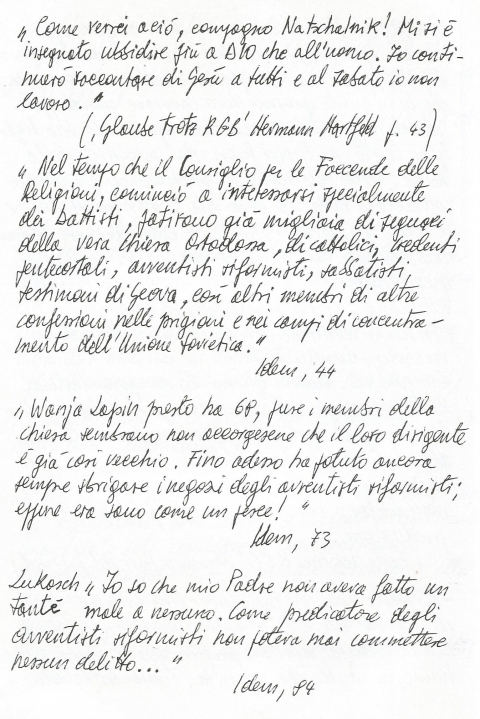 „ Come verrei a ció, compagno Natschalnik! Mi si é
insegnato ubbidire più a DIO che all'uomo. Io conti-
nueró raccontare di Gesú a tutti e al sabato io non
lavoro. "
(‚Glaube trotz KGB' Hermann Hartfeld p. 43)
„ Nel tempo che il Consiglio per le Faccende delle
Religioni, cominció a interessarsi specialmente
dei Battisti, patirono giá migliaia di seguaci
della vera Chiesa Ortodossa, di cattolici, credenti
pentecostali, avventisti riformisti, sabbatisti,
testimoni di Geova, cosí altri membri di altre
confessioni nelle prigioni e nei campi di concentra-
mento dell'Unione Sovietica."
Idem, 44
„ Wanja Lapin presto ha 68, pure i membri della
chiesa sembrano non accorgesene che il loro dirigente
é giá cosí vecchio. Fino adesso ha potuto ancora
sempre sbrigare i negozi degli avventisti riformisti;
eppure era sano come un pesce! "
Idem, 73
Lukosch „ Io so che mio Padre non aveva fatto un
tanté male a nessuno. Come predicatore degli
avventisti riformisti non poteva mai commettere
nessun delitto... "
Idem, 84